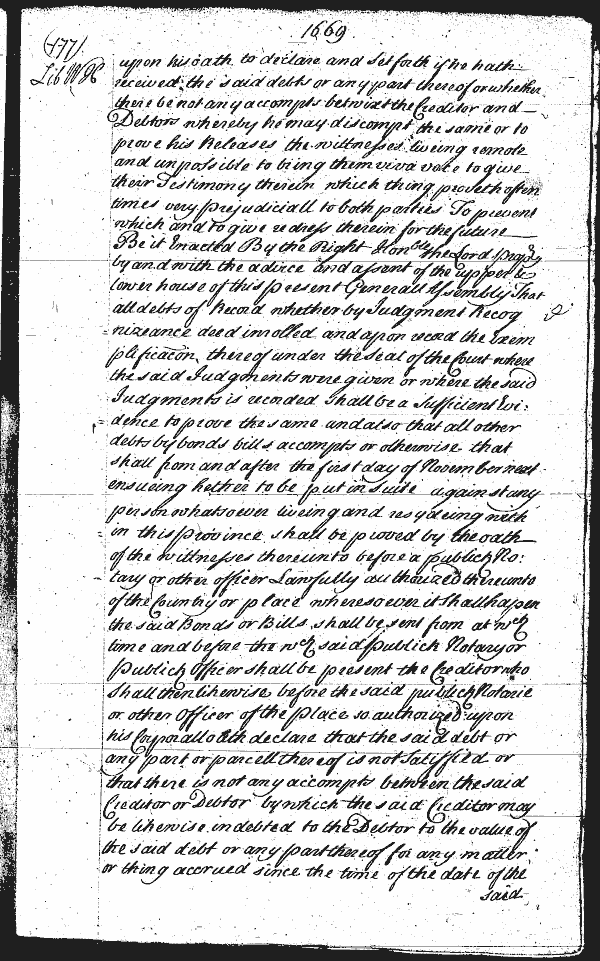 1669
(177)
Lib WH
upon his oath to declare and set forth if he hath
received the said debts or any part thereof or whether
there be not any accompts betwixt the Creditor and
Debtors whereby he may discompt the same or to
prove his Releases the wittnesses liveing remote
and unpossible to bring them viva voce to give
their Testimony therein which thing proveth often
times very prejudiciall to both parties To prevent
which and to give redress therein for the future
Be it Enacted By the Right Honble the Lord Propry
by and with the advice and assent of the upper &
lower house of this present Generall Assembly That
all debts of Record whether by Judgment Recog
nizeance deed inrolled and upon record the exem
plificacon thereof under the seal of the Court where
the said Judgments were given or where the said
Judgments is recorded shall be a Sufficient Evi:
dence to prove the same and also that all other
debts by bonds bills accompts or otherwise that
shall from and after the first day of November next
ensueing hether to be put in suite against any
person whatsoever liveing and resydeing with
in this Province shall be proved by the oath
of the wittnesses thereunto before a publick No:
tary or other officer Lawfully authorized thereunto
of the Country or place wheresoever it shall hapen
the said Bonds or Bills shall be sent from at wch
time and before the wch said Publick Notary or
Publick Officer shall be present the Creditor who
shall then likewise before the said publick Notarie
or other Officer of the Place so authorized upon
his Corporall Oath declare that the said debt or
any part or parcell thereof is not Satisfied or
that there is not any accompts between the said
Creditor or Debtor by which the said Creditor may
be likewise indebted to the Debtor to the value of
the said debt or any part thereof for any matter
or thing accrued since the time of the date of the
said